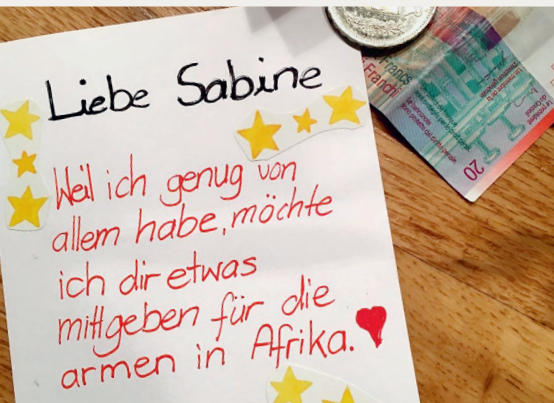 Liebe Sabine
Weil ich genug von
allem habe, möchte
ich dir etwas
mitgeben für die
armen in Afrika.
Franchi
Francs
20